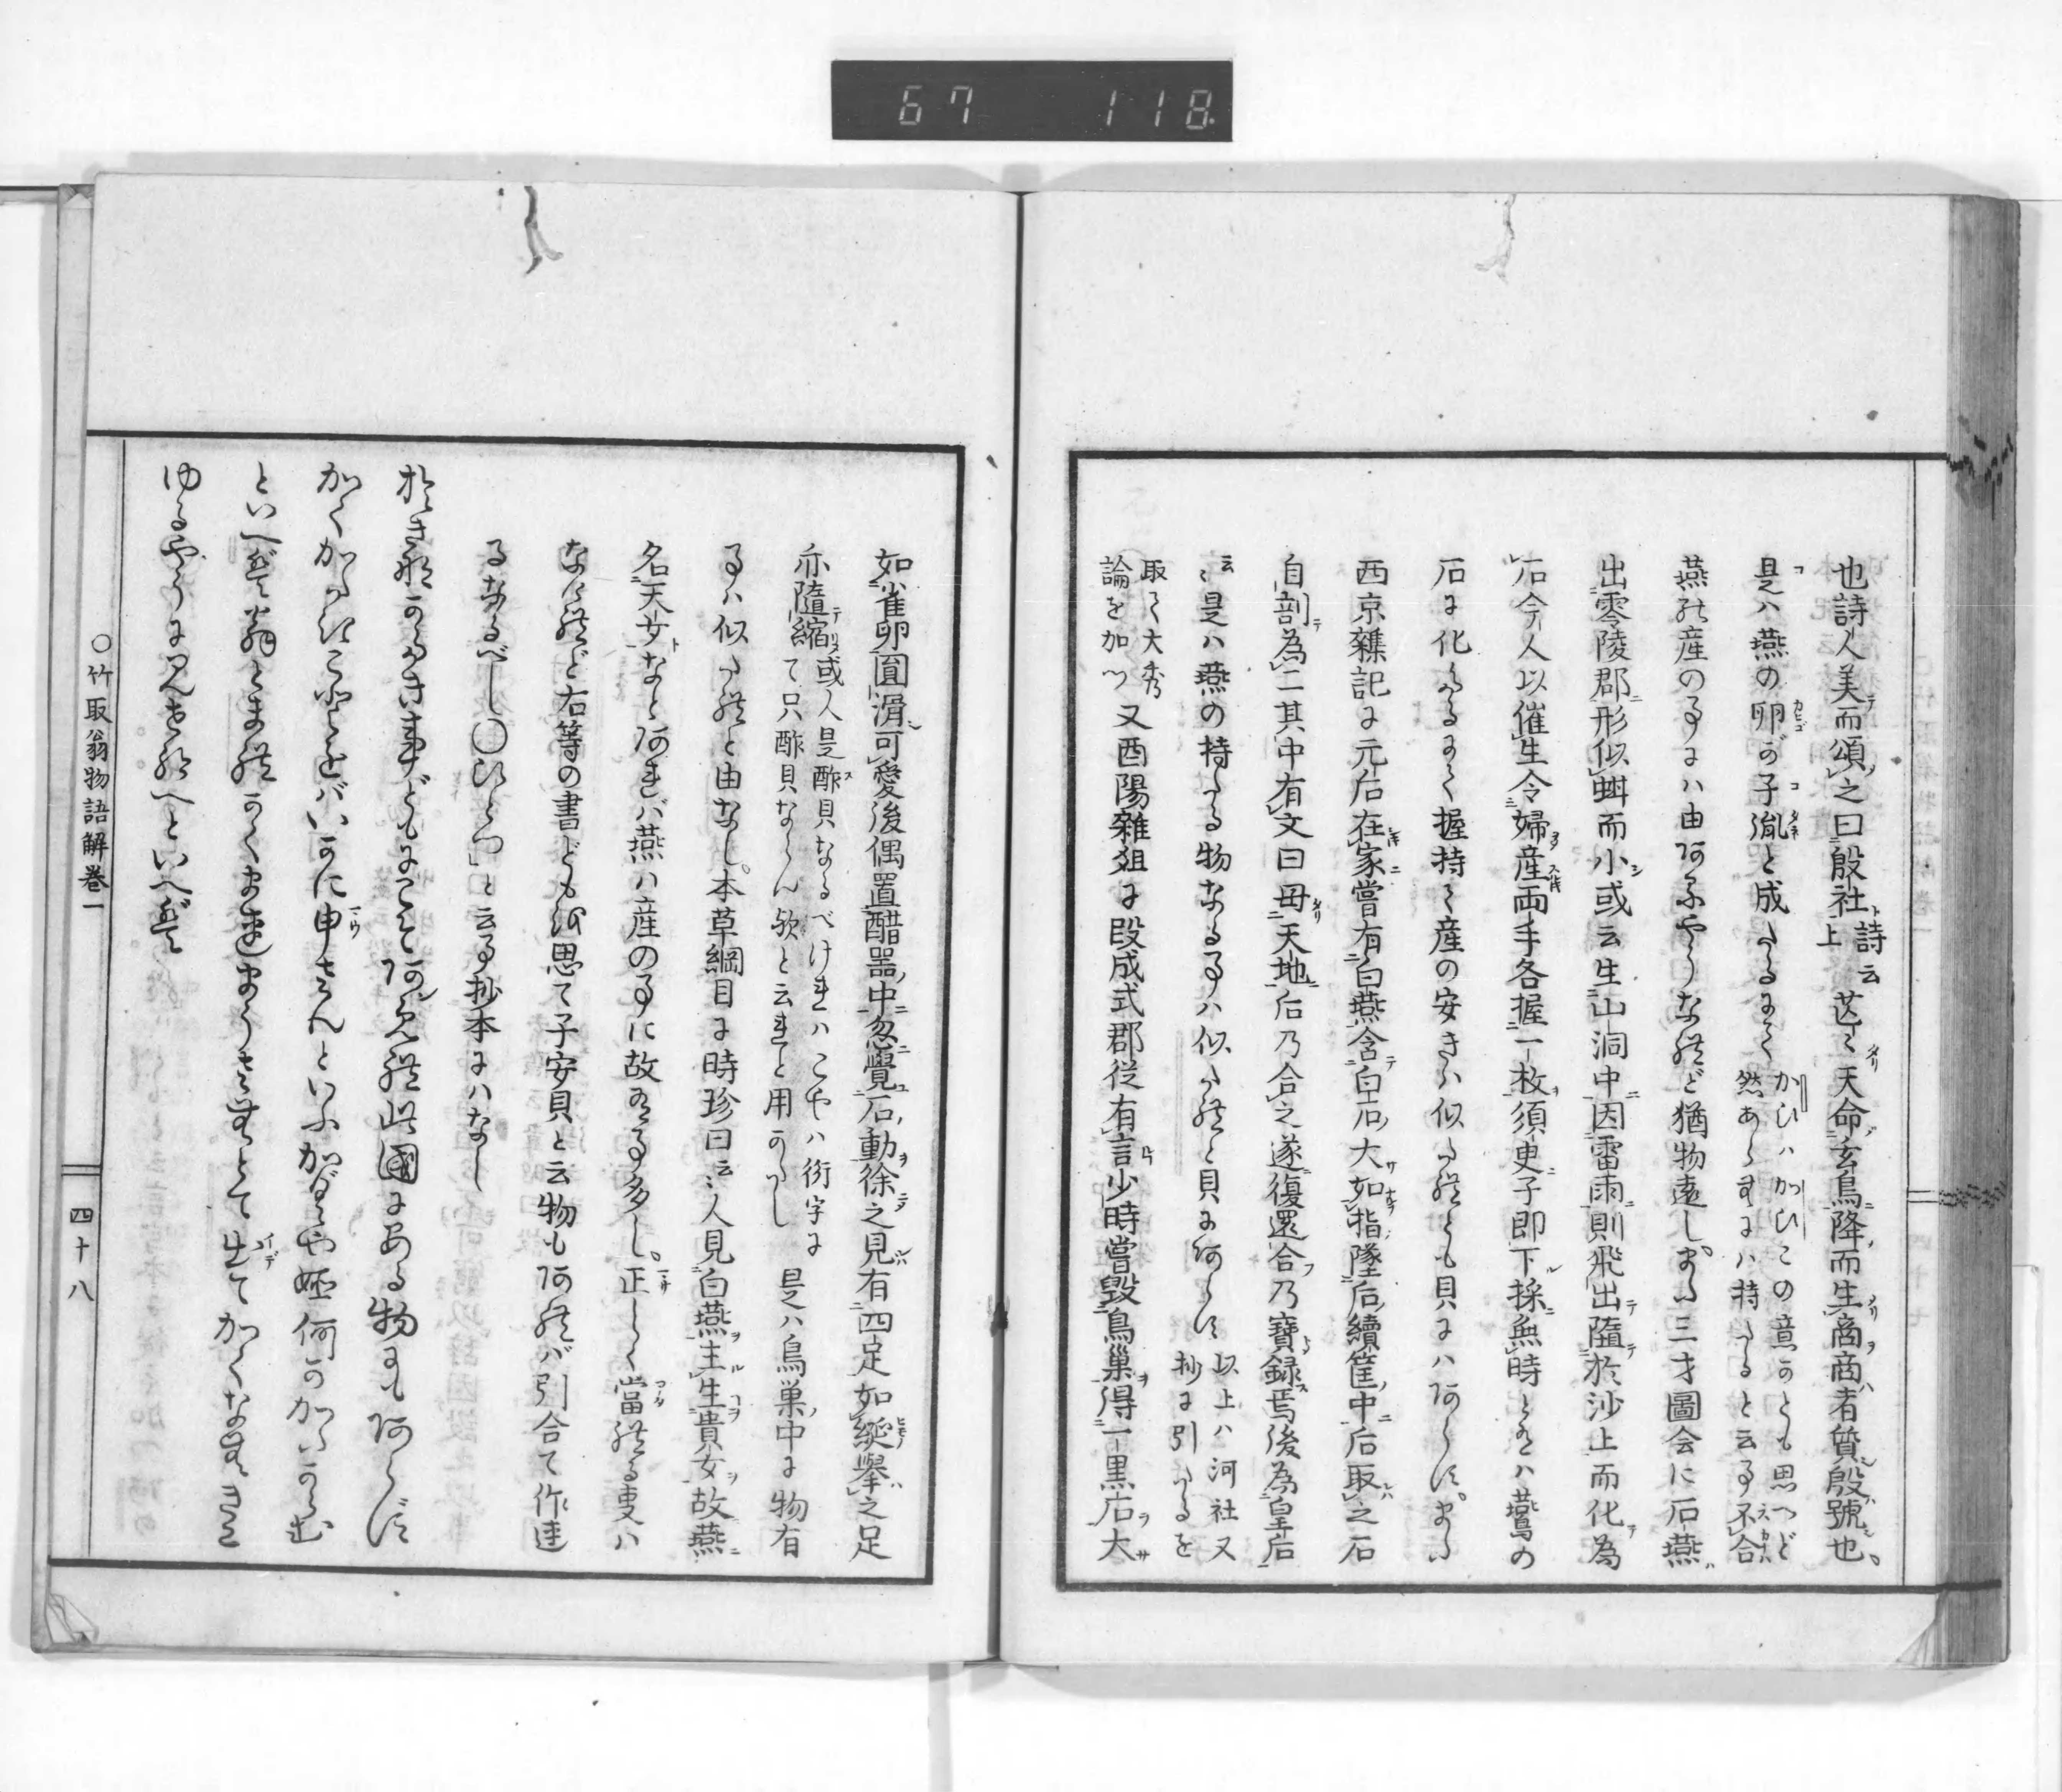 67 118
也詩人美而頌之曰殷社詩上云芒々天命玄鳥降而生商商者質殷號也。
是ハ燕の卵が子胤と成たるにてかひハかつひこの意かとも思へど然あらむにハ持たると云る不合
燕の産の事にハ由あるやうなれど猶物遠し。また三才圖会に石燕
出零陵郡形似蚶而小或云生山洞中因雷雨則飛出隨於沙上而化為
石今人以催生令婦産両手各握一枚須臾子即下採無時とるハ鷰の
石に化たるにて握持て産の安きハ似たれとも貝にハあらす。また
西京雜記に元后在家嘗有白燕含白石大如指墜后續筐中后取之石
自剖為二其中有文曰母天地后乃合之遂復還合乃寶録焉後為皇后
云々是ハ燕の持たる物なる事ハ似たれと貝にあらす以上ハ河社又抄に引たるを
取て大秀論を加つ又酉陽雜俎に段成式郡従有言少時嘗毀鳥巣得一黒石大
如雀卵圓滑可愛後偶置醋器中忽覺石動徐之見有四足如綖擧之足
亦隨縮或人是酢貝なるべけれハこやハ衍字にて只酢貝ならん歟と云れと用かたし是ハ鳥巣中に物有
る事ハ似たれと由なし。本草綱目に時珍曰云々人見白燕主生貴女故燕
名天女なとあれバ燕ハ産の事に故ある多し。正しく當れる事ハ
なけれど右等の書ども越思て子安貝と云物もあれバ引合て作連
るなるべし〇ひとつ」と云る抄本にハなし
かくかたきことをバいかに申さんといふかぐや姫何かかたからむ
といへば翁とまれかくまれまうさむとて出てかくなむきこ
ゆるやうに見せ給へといへば
〇竹取翁物語解巻一
四十八